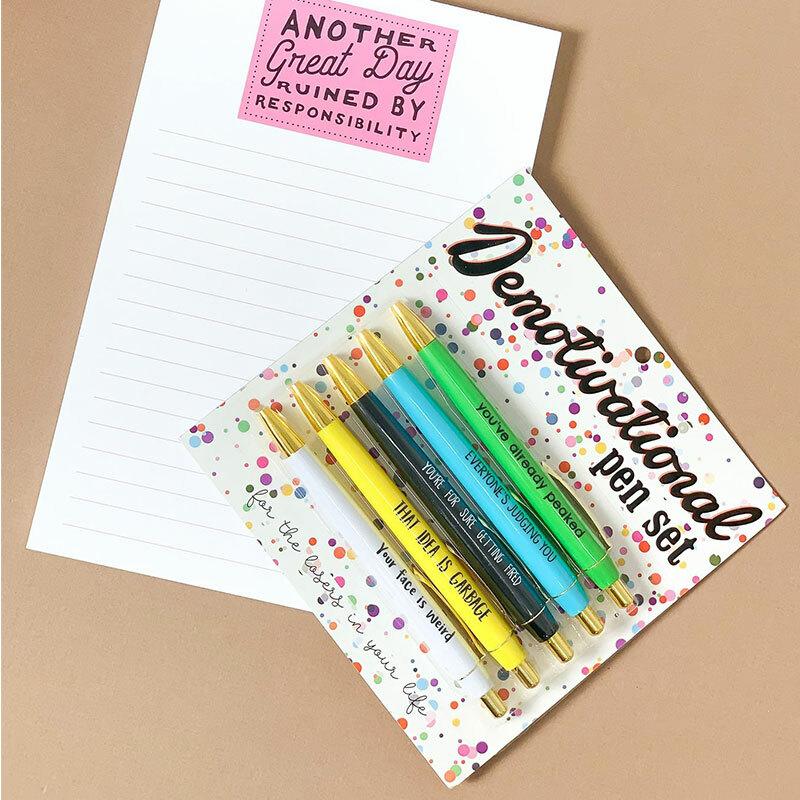 ANOTHER
Great Day
RUINED BY
RESPONSIBILITY
Demotivational
pen set
you've already peaked
EVERYONE'S JUDGING YOU
YOU'RE FOR SURE GETTING FIRED
THAT IDEA IS GARBAGE
Your face is weird
for the losers in your life